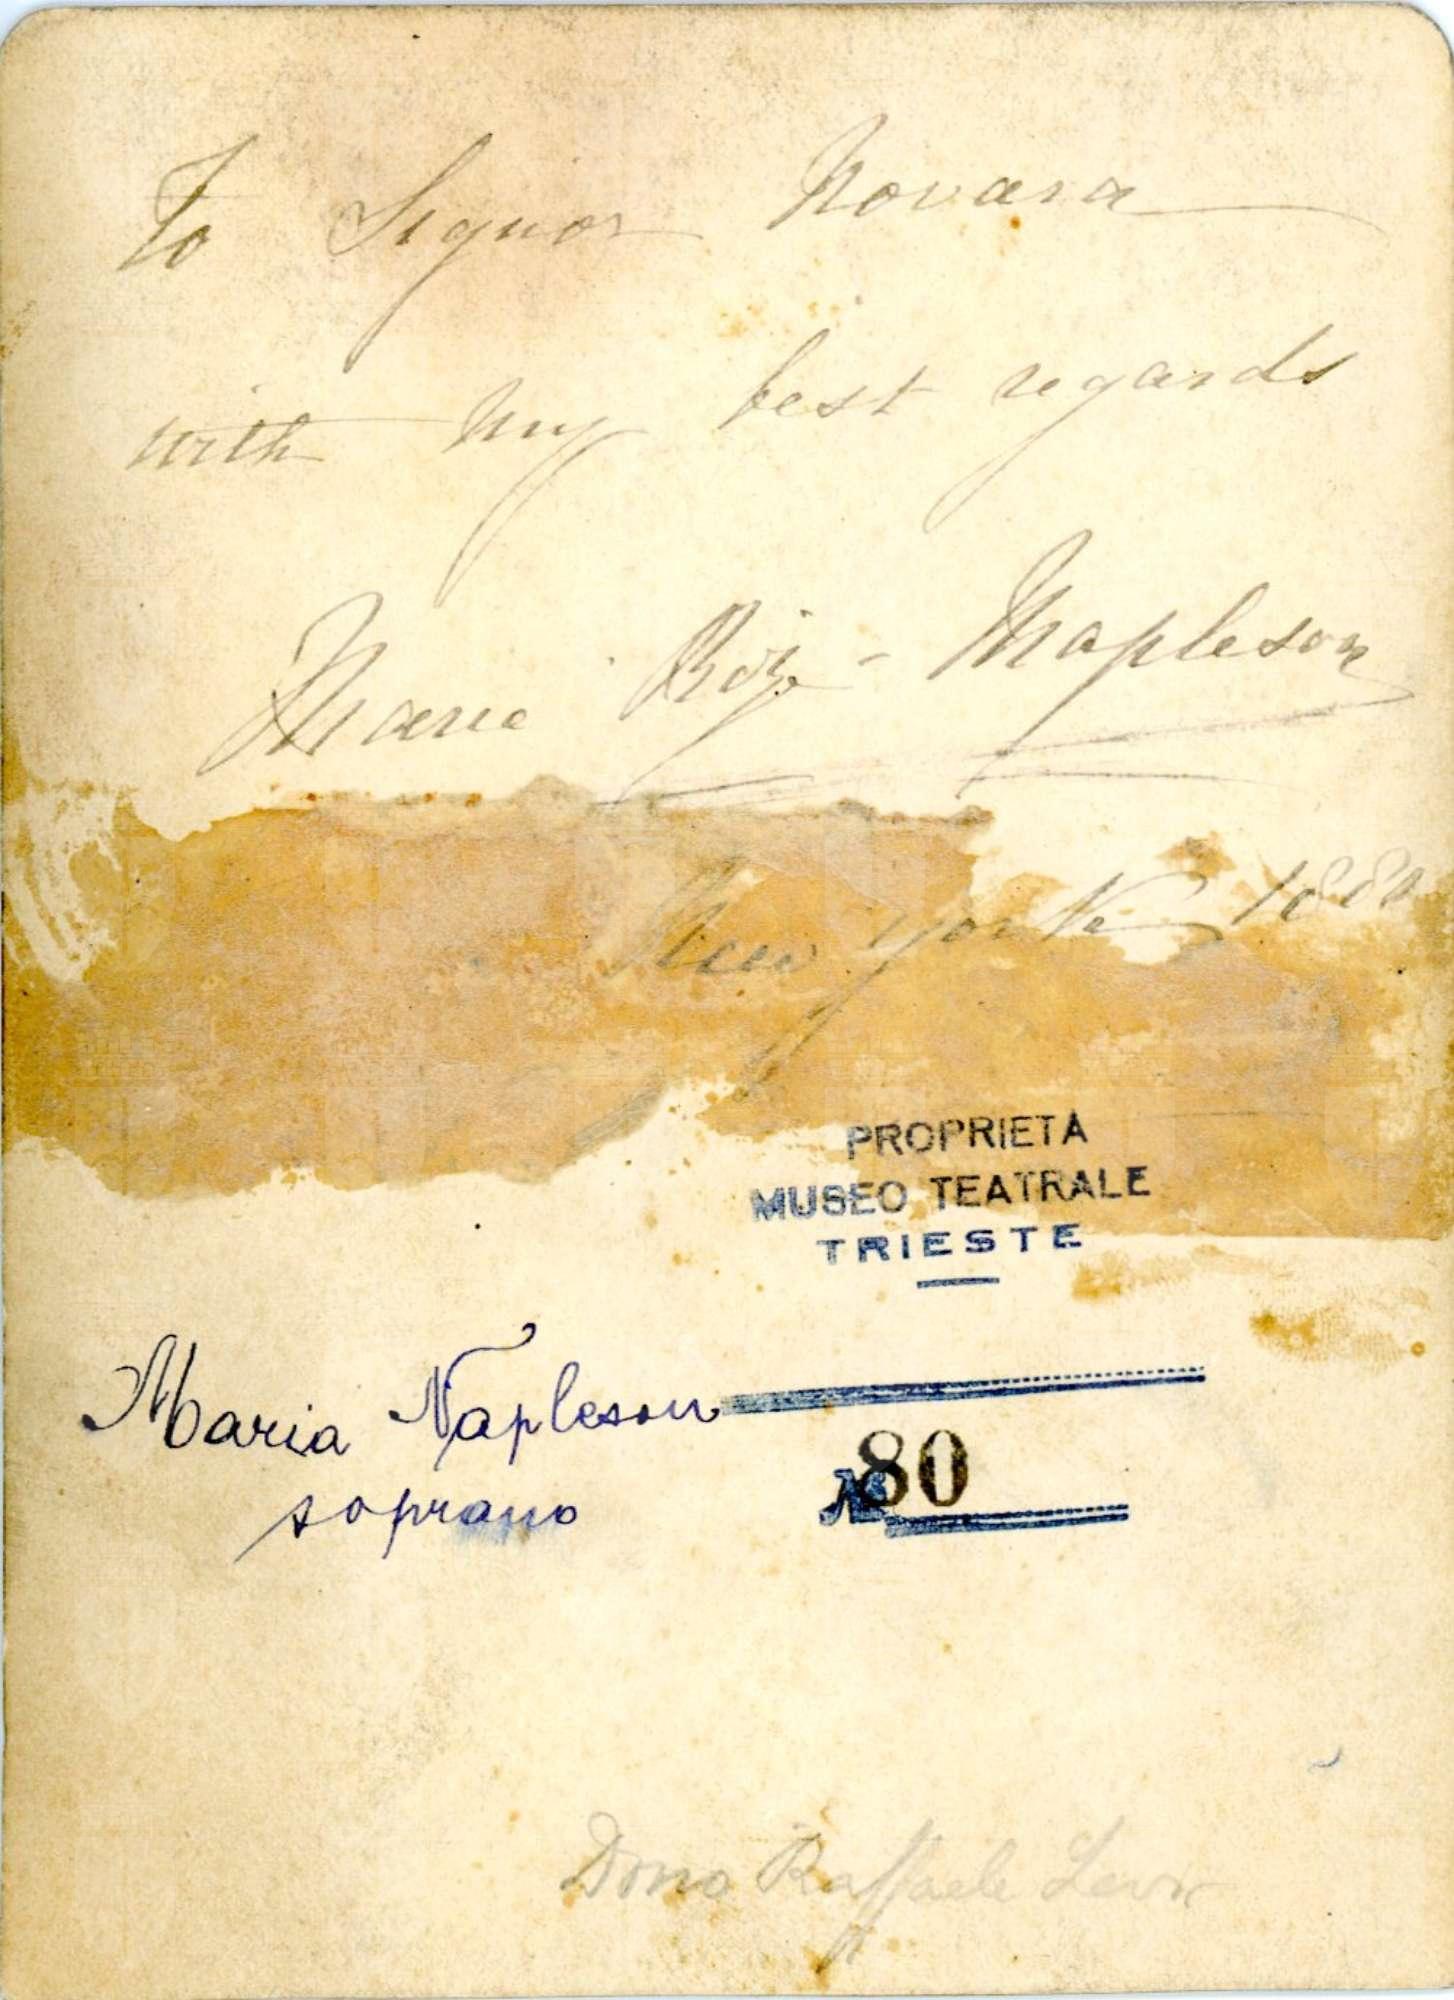 To Signor Novara
with my best regards
Marie Roze - Mapleson
New York 1880
PROPRIETÀ
MUSEO TEATRALE
TRIESTE
Maria Napleson
soprano
№ 80
Dono Raffaele Levi